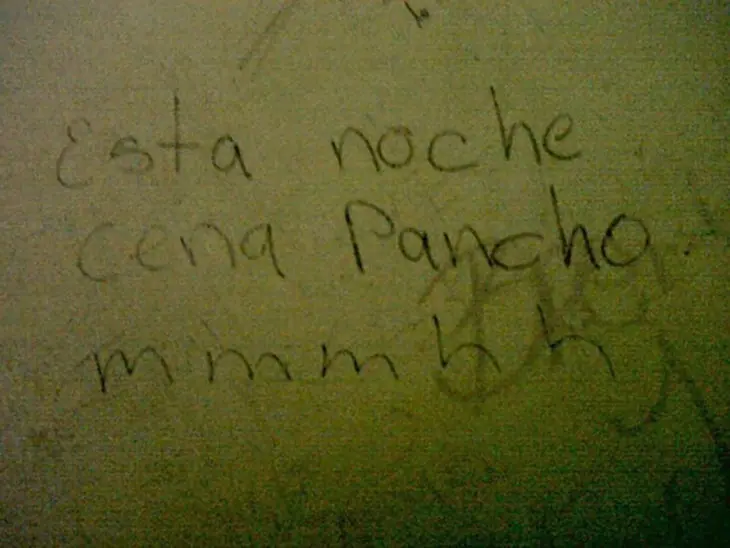 Esta noche
cena Pancho.
mmmhh